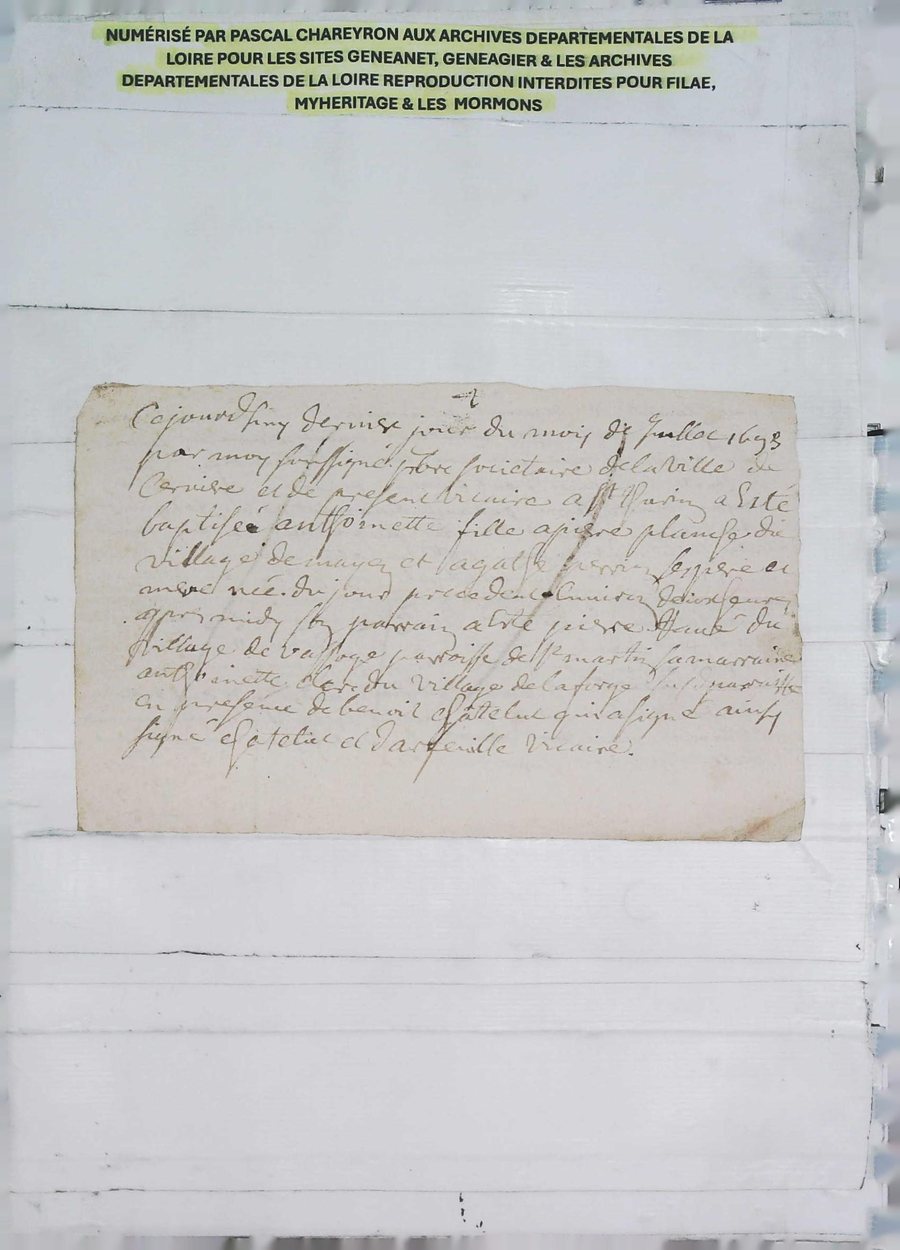 NUMÉRISÉ PAR PASCAL CHAREYRON AUX ARCHIVES DEPARTEMENTALES DE LA
LOIRE POUR LES SITES GENEANET, GENEAGIER & LES ARCHIVES
DEPARTEMENTALES DE LA LOIRE REPRODUCTION INTERDITES POUR FILAE,
MYHERITAGE & LES MORMONS
Cejourdhuy dernier jour du mois de Juillet 1693
par moy soussigné pbre societaire de la ville de
Cerviere et de present vicaire a St thurin a esté
baptiseé anthoinette fille a pierre planche du
village de mayen et agathe perrin ses pere et
mere neé du jour precedent environ heures
apres midy son parrain a esté pierre du
village de parroisse de St martin sa marraine
anthoinette du village de la forge parroisse
en presence de benoit chatelut qui a signé ainsy
signé chatelut et vicaire.